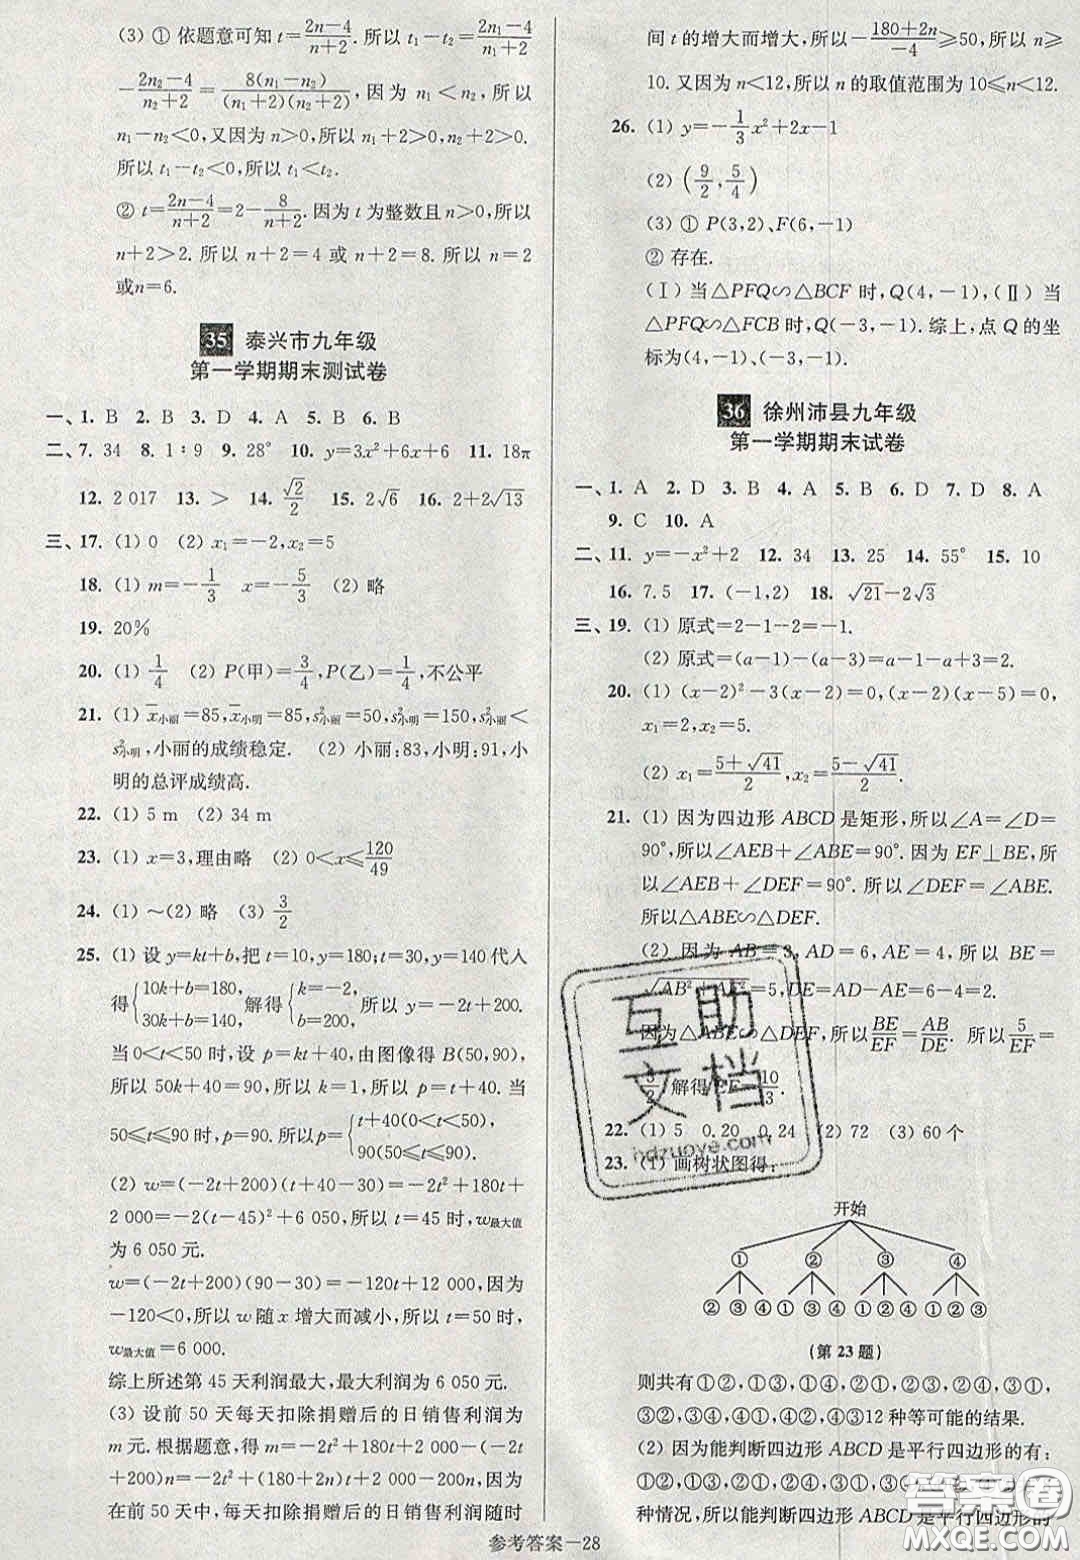 (3) ① 依题意可知 t=\frac{2n-4}{n+2}. 所以 t₁-t₂=\frac{2n₁-4}{n₁+2}
-\frac{2n₂-4}{n₂+2}=\frac{8(n₁-n₂)}{(n₁+2)(n₂+2)},因为 n₁<n₂,所以
n₁-n₂<0,又因为 n>0,所以 n₁+2>0,n₂+2>0.
所以 t₁-t₂<0,所以 t₁<t₂.
② t=\frac{2n-4}{n+2}=2-\frac{8}{n+2}. 因为 t 为整数且 n>0,所以
n+2>2. 所以 n+2=4 或 n+2=8. 所以 n=2
或n=6.
35 泰兴市九年级
第一学期期末测试卷
一、1. B 2. B 3. D 4. A 5. B 6. B
二、7. 34 8. 1∶9 9. 28° 10. y=3x²+6x+6 11. 18π
12. 2 017 13. > 14. \frac{√2}{2} 15. 2√6 16. 2+2√13
三、17. (1) 0 (2) x₁=-2,x₂=5
18. (1) m=-\frac{1}{3} x=-\frac{5}{3} (2) 略
19. 20%
20. (1) \frac{1}{4} (2) P(甲)=\frac{3}{4},P(乙)=\frac{1}{4},不公平
21. (1) x̄小丽=85,x̄小明=85,s²小丽=50,s²小明=150,s²小丽<
s²小明,小丽的成绩稳定. (2) 小丽:83,小明:91,小
明的总评成绩高.
22. (1) 5 m (2) 34 m
23. (1) x=3,理由略 (2) 0<x≤\frac{120}{49}
24. (1)~(2) 略 (3) \frac{3}{2}
25. (1) 设 y=kt+b,把 t=10,y=180;t=30,y=140 代入
得{10k+b=180, 30k+b=140, 解得{k=-2, b=200, 所以 y=-2t+200.
当 0<t<50 时,设 p=kt+40,由图像得 B(50,90),
所以 50k+40=90,所以 k=1,所以 p=t+40. 当
50≤t≤90 时,p=90. 所以p={t+40(0<t<50), 90(50≤t≤90).
(2) w=(-2t+200)(t+40-30)=-2t²+180t+
2 000=-2(t-45)²+6 050,所以 t=45 时,w最大值
为 6 050 元.
w=(-2t+200)(90-30)=-120t+12 000,因为
-120<0,所以 w 随 x 增大而减小,所以 t=50 时,
w最大值=6 000.
综上所述第 45 天利润最大,最大利润为 6 050 元.
(3) 设前 50 天每天扣除捐赠后的日销售利润为
m元. 根据题意,得 m=-2t²+180t+2 000-(-2t
+200)n=-2t²+(180+2n)t+2 000-200n,因为
在前 50 天中,每天扣除捐赠后的日销售利润随时
间 t 的增大而增大,所以-\frac{180+2n}{-4}≥50,所以 n≥
10. 又因为 n<12,所以 n 的取值范围为 10≤n<12.
26. (1) y=-\frac{1}{3}x²+2x-1
(2) (\frac{9}{2},\frac{5}{4})
(3) ① P(3,2)、F(6,-1)
② 存在.
(Ⅰ) 当△PFQ∽△BCF 时,Q(4,-1),(Ⅱ) 当
△PFQ∽△FCB 时,Q(-3,-1). 综上,点 Q 的坐
标为(4,-1)或(-3,-1).
36 徐州沛县九年级
第一学期期末试卷
一、1. A 2. D 3. B 4. A 5. B 6. D 7. D 8. A
9. C 10. A
二、11. y=-x²+2 12. 34 13. 25 14. 55° 15. 10
16. 7.5 17. (-1,2) 18. √21-2√3
三、19. (1) 原式=2-1-2=-1.
(2) 原式=(a-1)-(a-3)=a-1-a+3=2.
20. (1) (x-2)²-3(x-2)=0,(x-2)(x-5)=0,
x₁=2,x₂=5.
(2) x₁=\frac{5+√41}{2},x₂=\frac{5-√41}{2}.
21. (1) 因为四边形 ABCD 是矩形,所以∠A=∠D=
90°,所以∠AEB+∠ABE=90°. 因为 EF⊥BE,所
以∠AEB+∠DEF=90°. 所以∠ABE=∠DEF.
所以△ABE∽△DEF.
(2) 因为 AB=3,AD=6,AE=4,所以 BE=
√AB²+AE²=5,DE=AD-AE=6-4=2.
因为△ABE∽△DEF,所以\frac{BE}{EF}=\frac{AB}{DE}. 所以\frac{5}{EF}=
\frac{3}{2},解得 EF=\frac{10}{3}.
22. (1) 5 0.20 0.24 (2) 72 (3) 60 个
23. (1) 画树状图得:
开始
① ② ③ ④
② ③ ④ ① ③ ④ ① ② ④ ① ② ③
(第 23 题)
则共有①②,①③,①④,②①,②③,②④,③①,
③②,③④,④①,④②,④③12 种等可能的结果.
(2) 因为能判断四边形 ABCD 是平行四边形的有:
种情况,所以能判断四边形 ABCD 是平行四边形的
参考答案—28
互助
文档
hdzuoye.com
答案圈
MXQE.COM